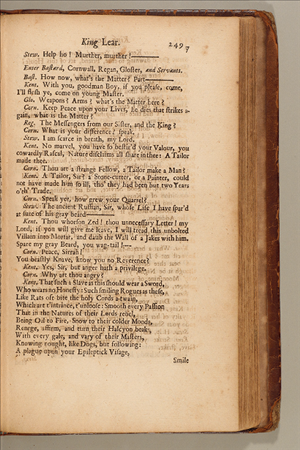 King Lear. 2497
Stew. Help ho! Murther, murther!
Enter Bastard, Cornwall, Regan, Gloster, and Servants.
Bast. How now, what's the Matter? Part
Kent. With you, goodman Boy, if you please, come,
I'll flesh ye, come on young Master.
Glo. Weapons? Arms? what's the Matter here?
Corn. Keep Peace upon your Lives, he dies that strikes a-
gain, what is the Matter?
Reg. The Messengers from our Sister, and the King?
Corn. What is your difference? speak.
Stew. I am scarce in breath, my Lord.
Kent. No marvel, you have so bestir'd your Valour, you
cowardly Rascal, Nature disclaims all share in thee: A Tailor
made thee.
Corn. Thou art a strange Fellow, a Tailor make a Man?
Kent. A Tailor, Sir? a Stone-cutter, or a Painter, could
not have made him so ill, tho' they had been but two Years
o'th' Trade.
Corn. Speak yet, how grew your Quarrel?
Stew. The ancient Ruffian, Sir, whose Life I have spar'd
at sute of his gray beard
Kent. Thou whorson Zed! thou unnecessary Letter! my
Lord, if you will give me leave, I will tread this unbolted
Villain into Mortar, and daub the Wall of a Jakes with him.
Spare my gray Beard, you wag-tail!
Corn. Peace, Sirrah!
You beastly Knave, know you no Reverence?
Kent. Yes, Sir, but anger hath a privilege.
Corn. Why art thou angry?
Kent. That such a Slave as this should wear a Sword,
Who wears no Honesty: Such smiling Rogues as these,
Like Rats oft bite the holy Cords a-twain,
Which are t'intrince, t'unloose: Smooth every Passion
That in the Natures of their Lords rebel,
Being Oil to Fire, Snow to their colder Moods,
Renege, affirm, and turn their Halcyon beaks,
With every gale, and vary of their Masters,
Knowing nought, like Dogs, but following:
A plague upon your Epileptick Visage,
Smile